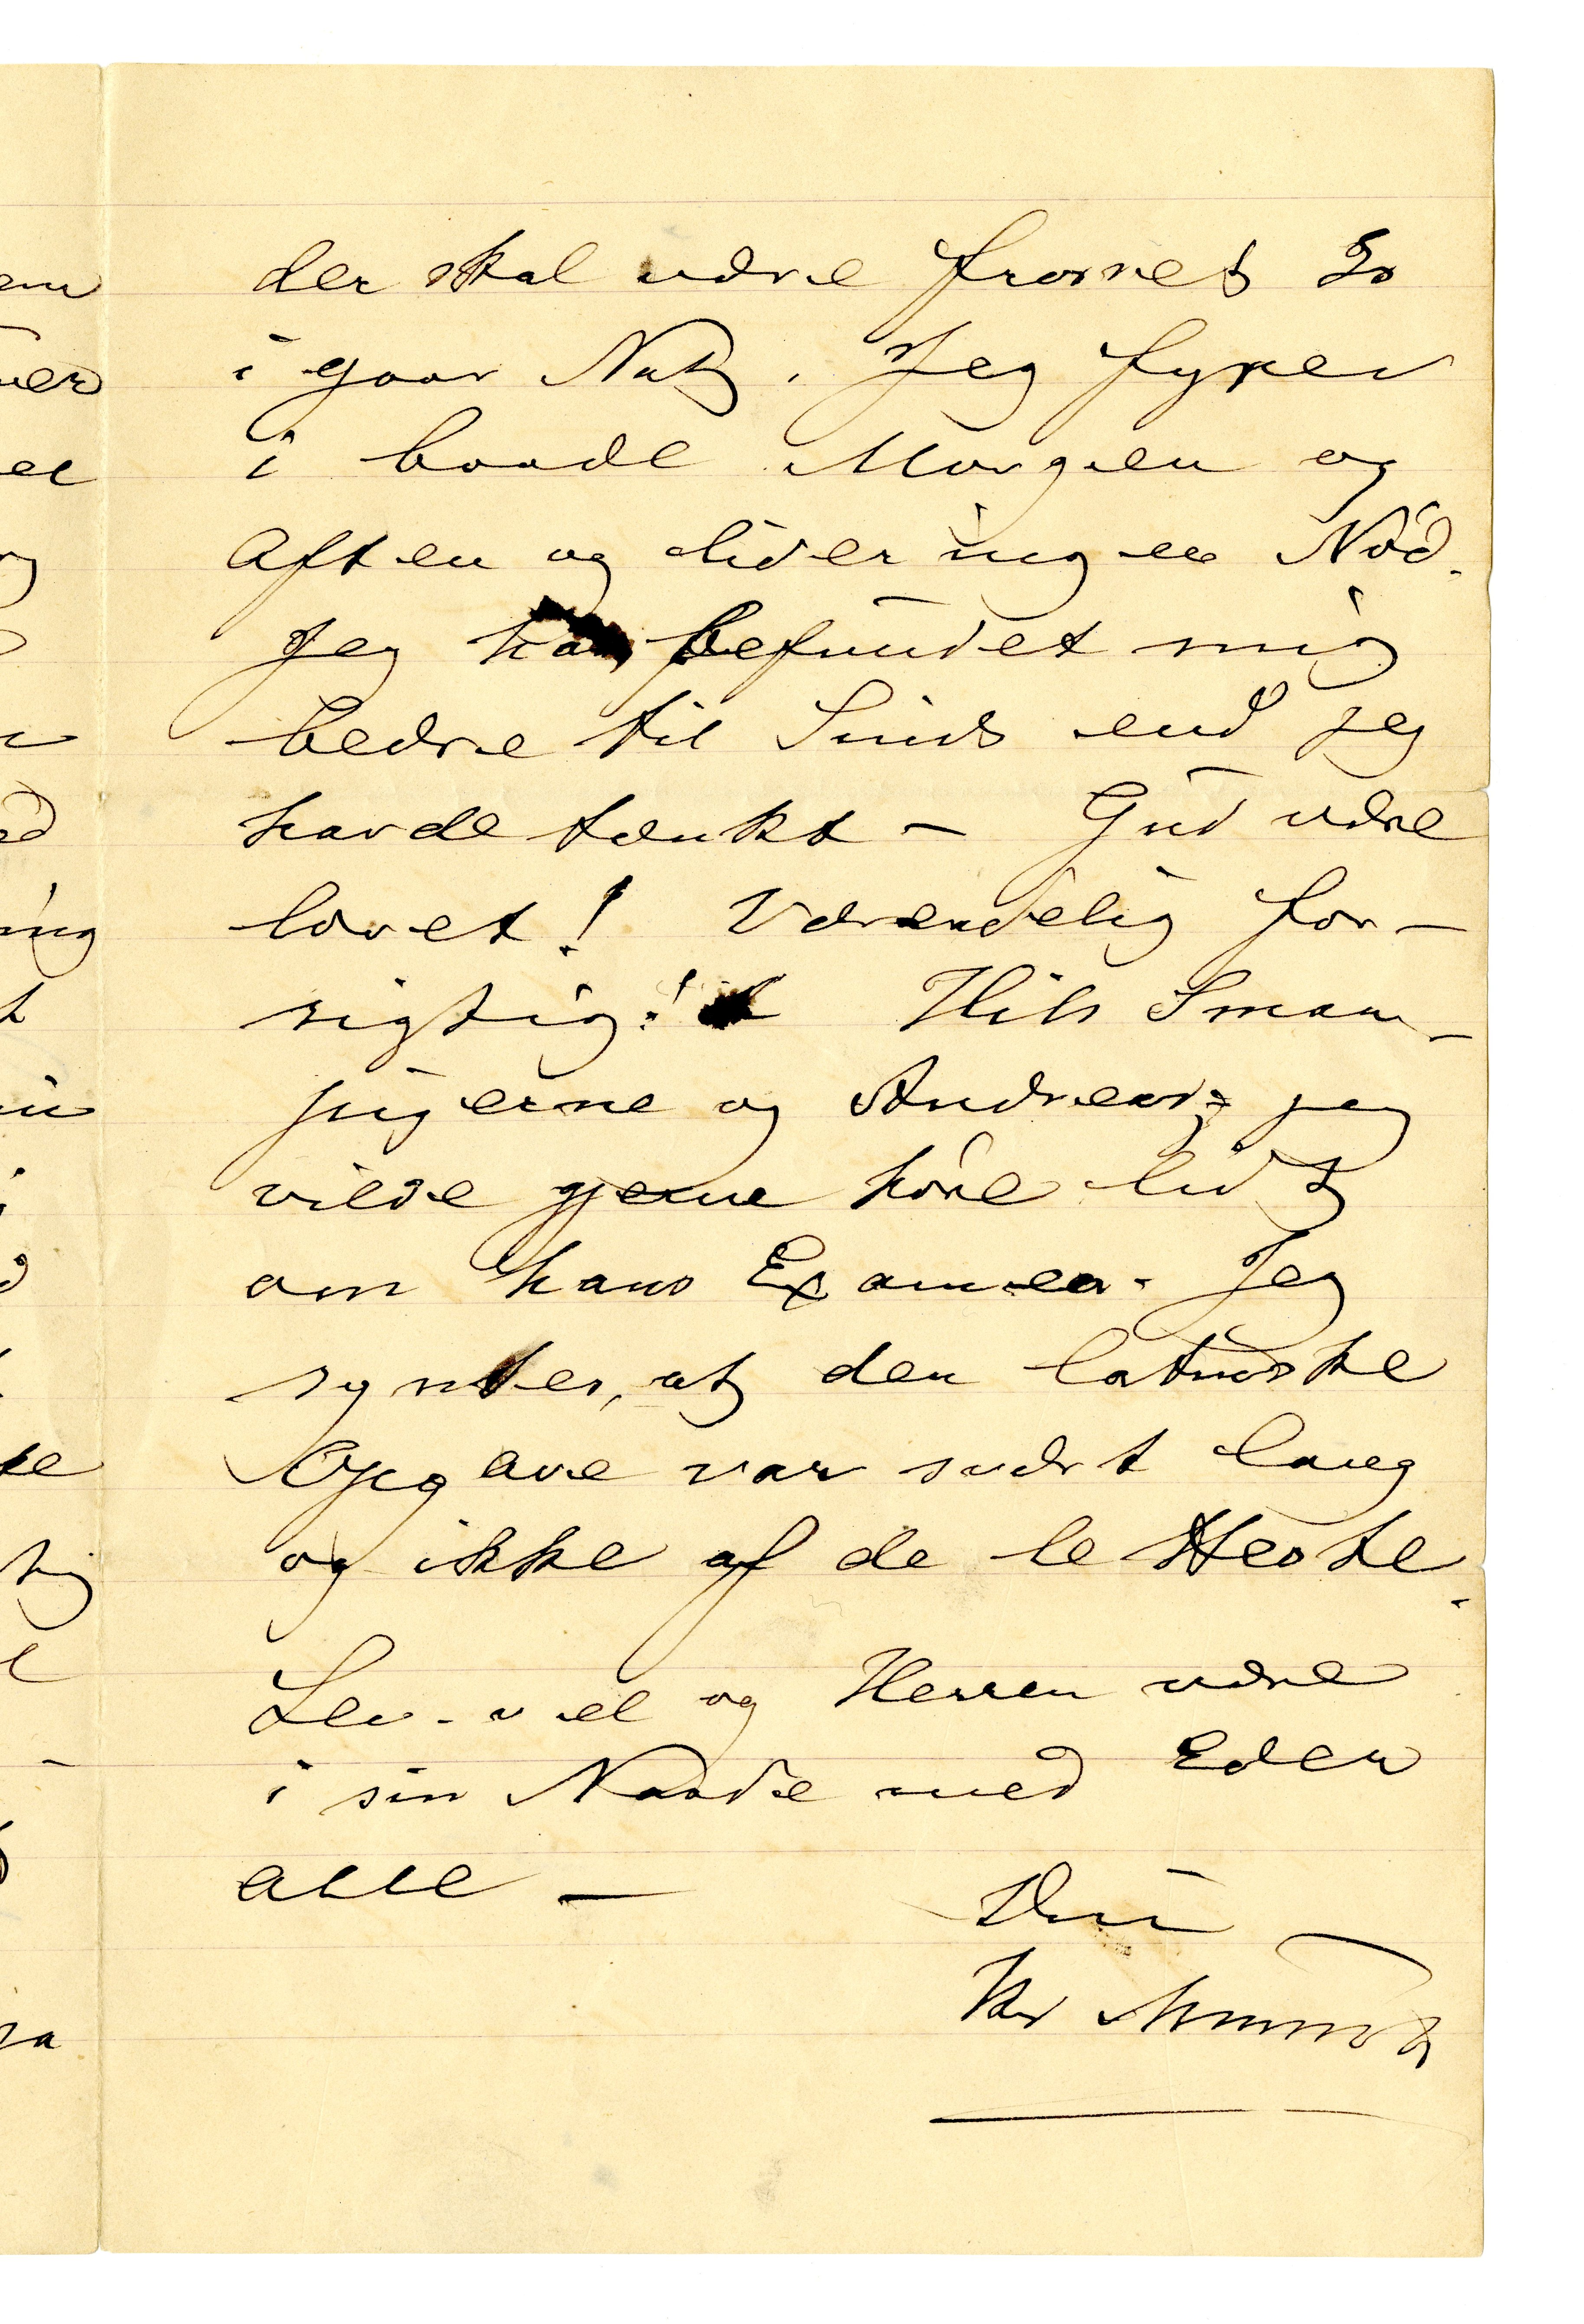 der skal være frosset Is
i gaar Nat. Jeg fyrer
i baade Morgen og
Aften og lider ingen Nød.
Jeg har befundet mig
bedre til Sinds end jeg
havde tænkt – Gud være
lovet! Vær endelig for-
sigtig! Hils Smaa-
pigerne og Andreas; jeg
vilde gjerne høre lidt
om hans Examen. Jeg
syntes, at den latinske
Opgave var svært lang
og ikke af de letteste.
Lev vel og Herren være
i sin Naade med Eder
alle –
Din